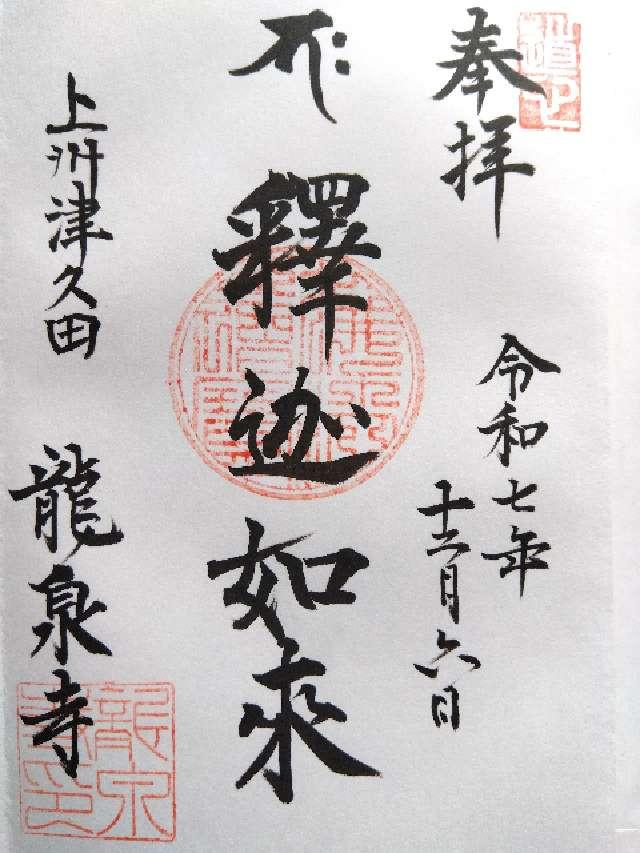 奉拝
令和七年
十二月六日
釋迦如來
上州津久田
龍泉寺